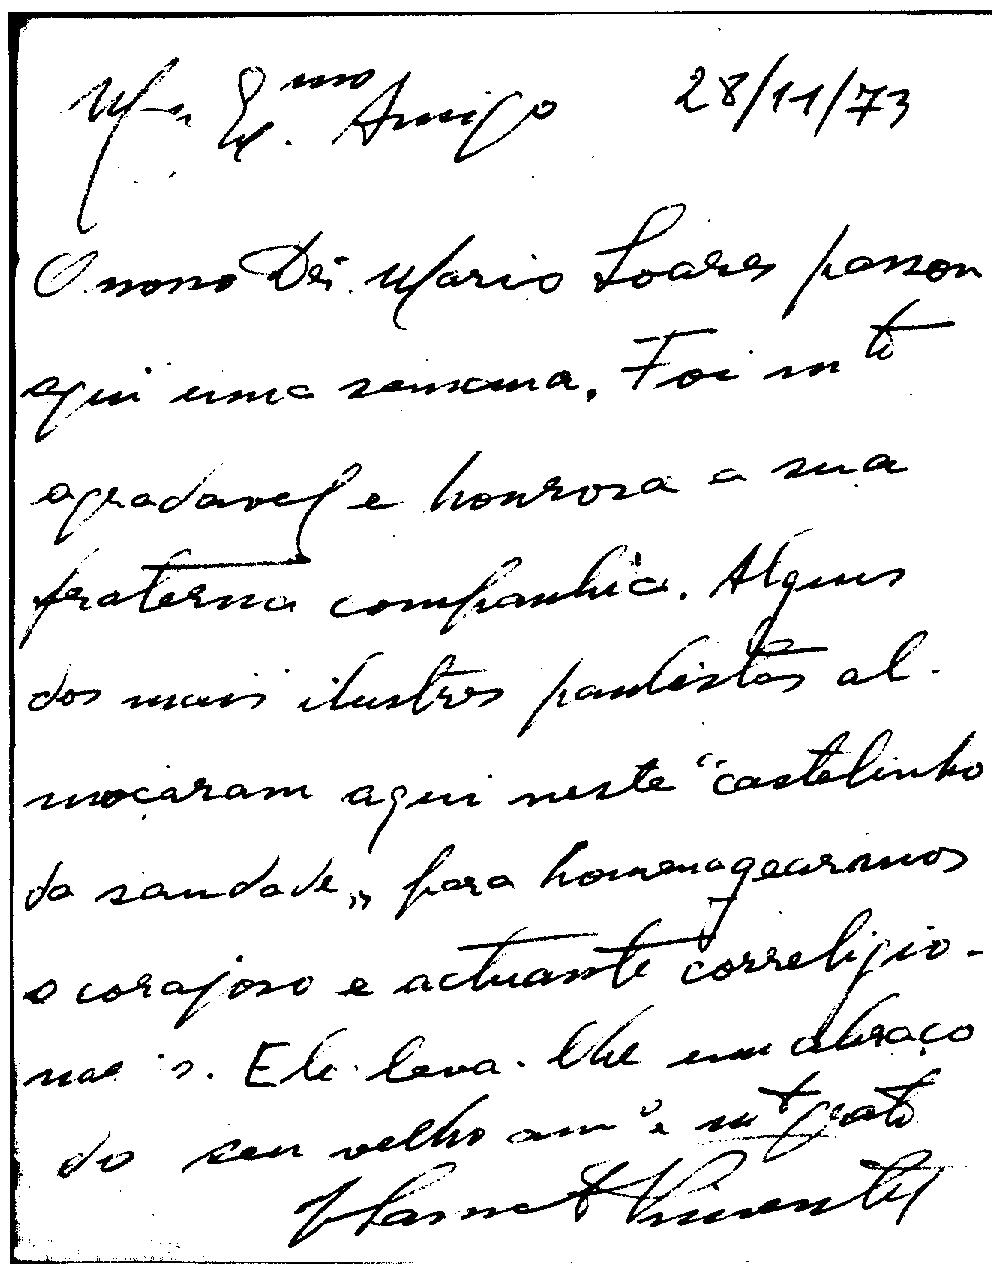 Meu Exmo. Amigo 28/11/73
O nosso Dr. Mario Soares passou
aqui uma semana. Foi mto
agradavel e honrosa a sua
fraterna companhia. Alguns
dos mais ilustres paulistas al-
moçaram aqui neste "castelinho
da saudade„ para homenagearmos
o corajoso e actuante correligio-
nario. Ele leva-lhe um abraço
do seu velho amo e mt grato